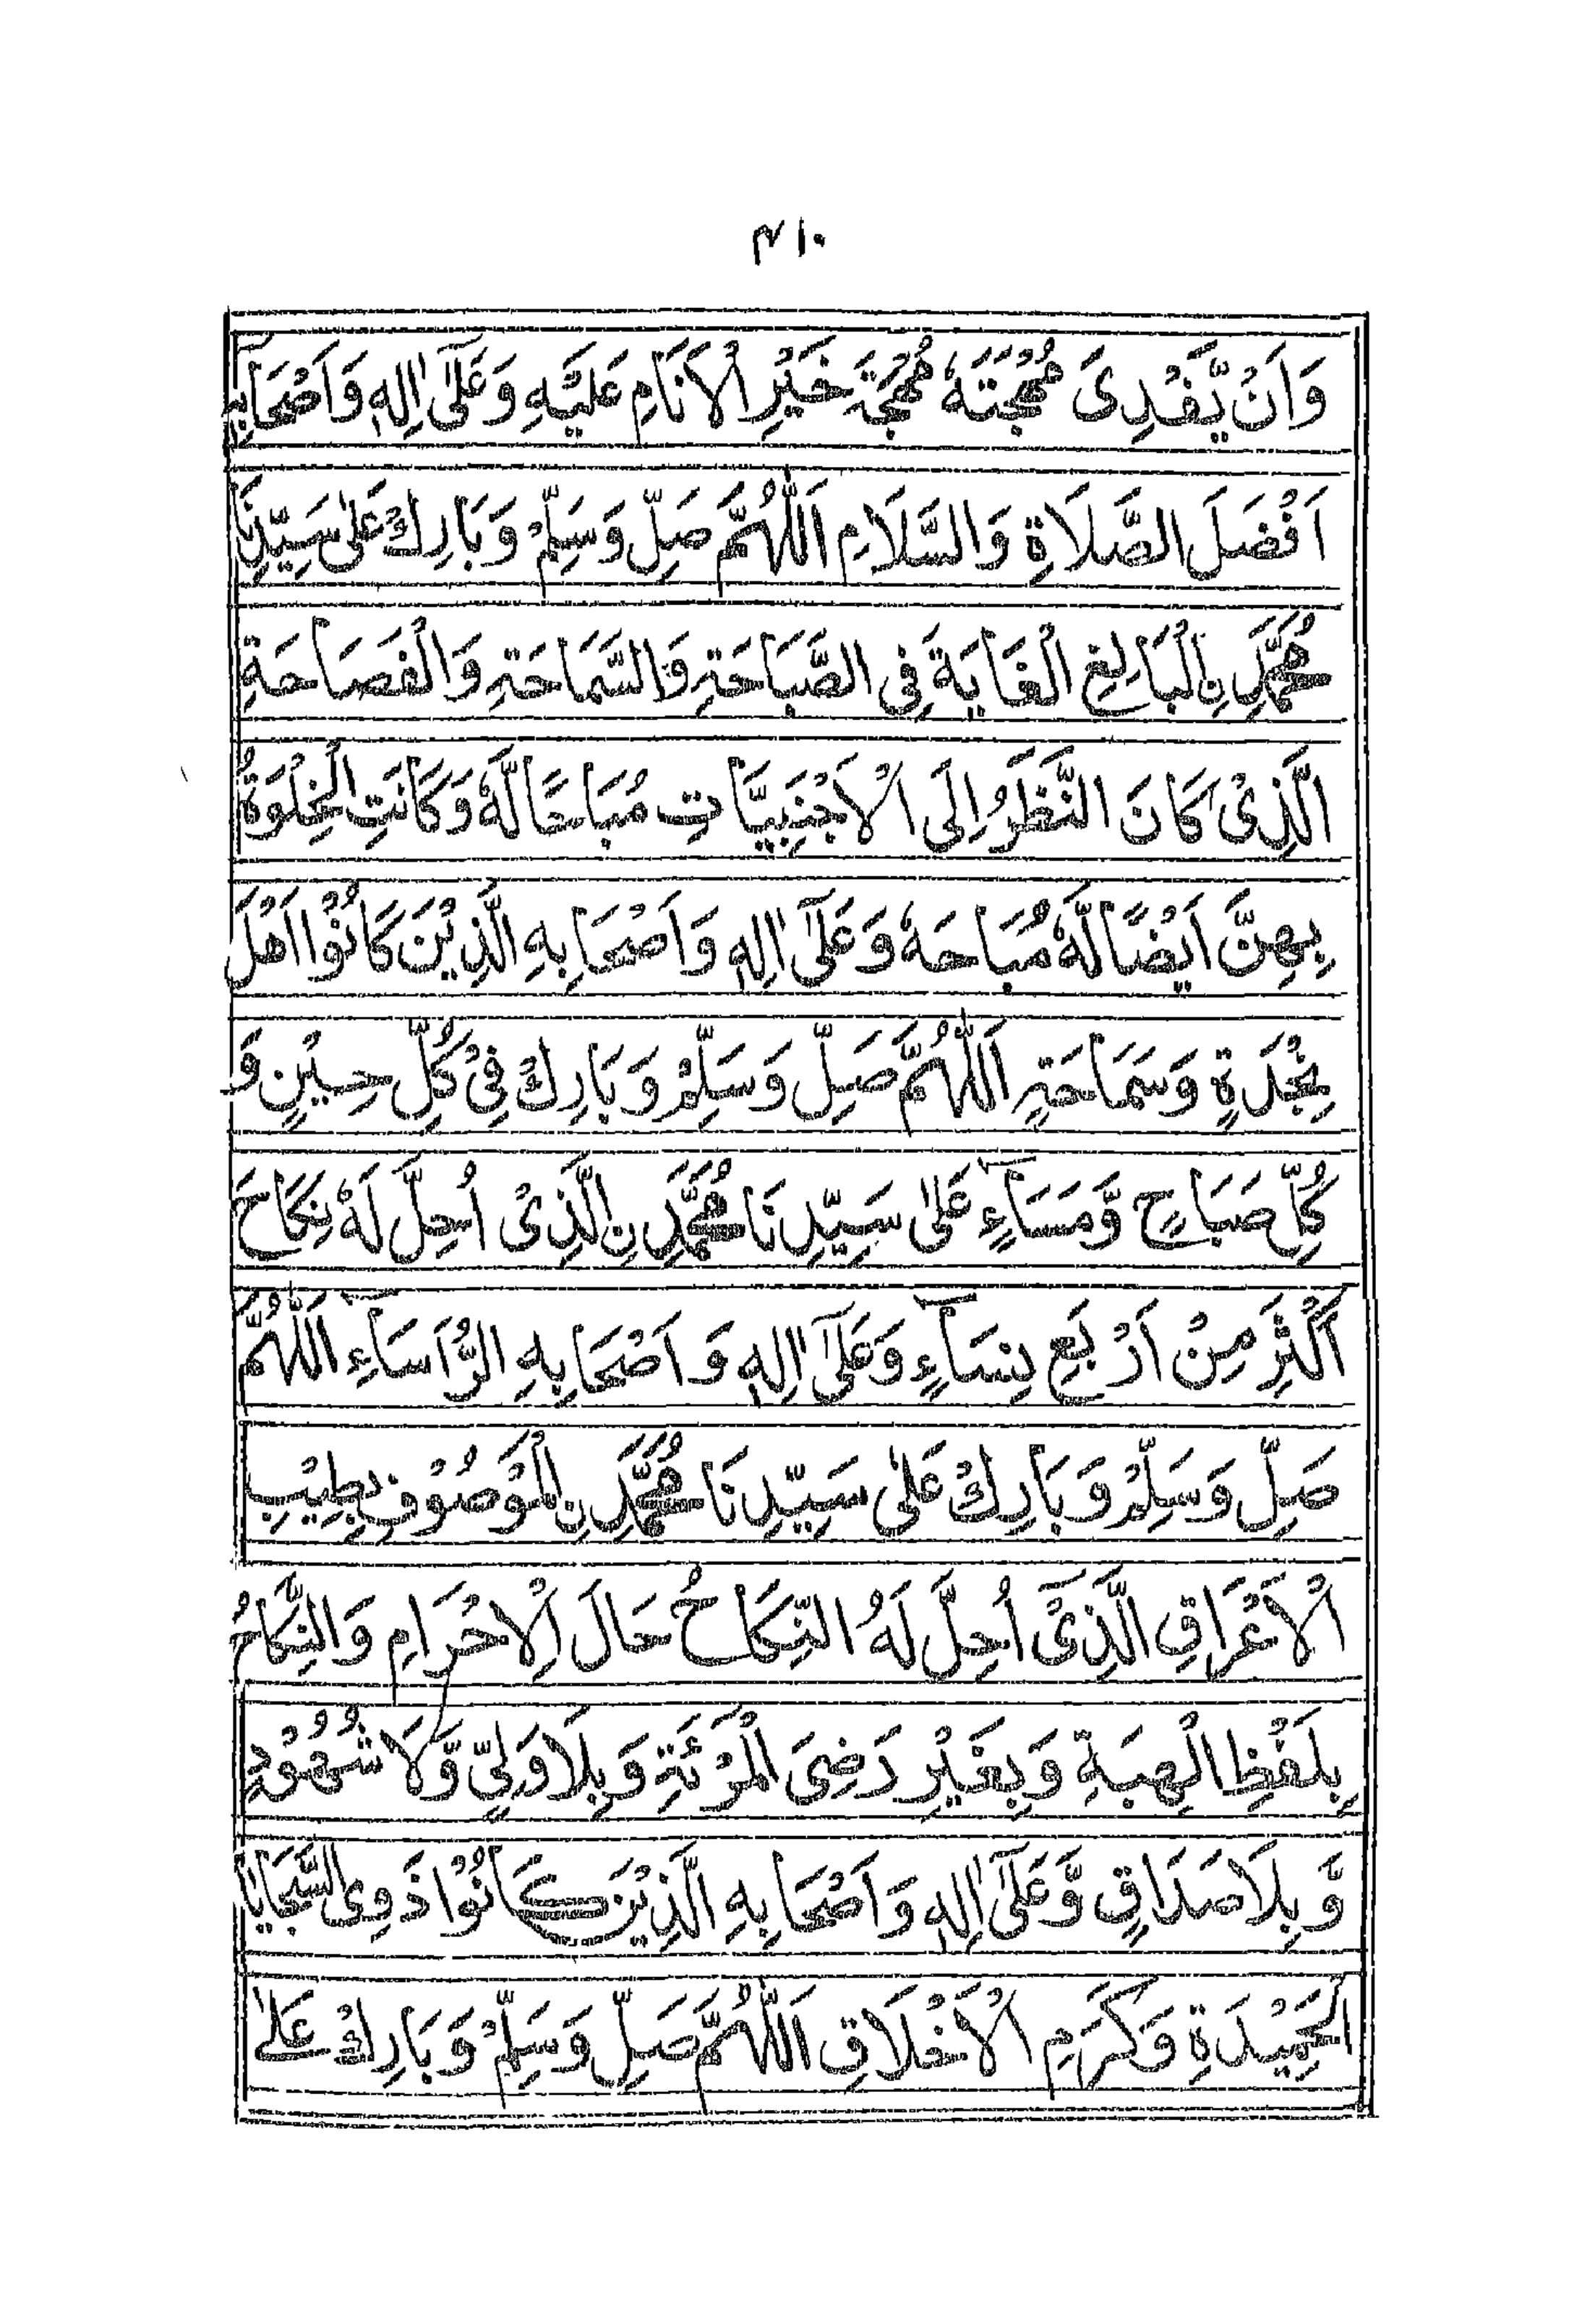 ۳۱۰
وَاَنْ يَّفْدِىَ مُهْجَتَهٗ مُهْجَةَ خَيْرِ الْاَنَامِ عَلَيْهِ وَعَلٰٓى اٰلِهٖ وَاَصْحَابِهٖ
اَفْضَلَ الصَّلَاةِ وَالسَّلَامِ اَللّٰهُمَّ صَلِّ وَسَلِّمْ وَبَارِكْ عَلٰى سَيِّدِنَا
مُحَمَّدِ نِ الْبَالِغِ الْغَايَةَ فِى الصَّبَاحَةِ وَالسَّمَاحَةِ وَالْفَصَاحَةِ
الَّذِىْ كَانَ النَّظَرُ اِلَى الْاَجْنَبِيَّاتِ مُبَاحًا لَّهٗ وَكَانَتِ الْخِلْوَةُ
بِهِنَّ اَيْضًا لَّهٗ مُبَاحَةٗ وَعَلٰٓى اٰلِهٖ وَاَصْحَابِهِ الَّذِيْنَ كَانُوْا اَهْلَ
نِجْدَةٍ وَسَمَاحَةٍ اَللّٰهُمَّ صَلِّ وَسَلِّمْ وَبَارِكْ فِىْ كُلِّ حِيْنٍ وَ
كُلِّ صَبَاحٍ وَّمَسَآءٍ عَلٰى سَيِّدِنَا مُحَمَّدِ نِ الَّذِىْ اُحِلَّ لَهٗ نِكَاحَ
اَكْثَرِ مِنْ اَرْبَعِ نِسَآءٍ وَعَلٰٓى اٰلِهٖ وَاَصْحَابِهِ الرُّاَسَآءِ اَللّٰهُمَّ
صَلِّ وَسَلِّمْ وَبَارِكْ عَلٰى سَيِّدِنَا مُحَمَّدِ نِ الْمَوْصُوْفِ بِطِيْبِ
الْاَعْرَاقِ الَّذِىْٓ اُحِلَّ لَهُ النِّكَاحُ حَالَ الْاِحْرَامِ وَالنِّكَاحُ
بِلَفْظِ الْهِبَةِ وَبِغَيْرِ رَضِىَ الْمَرْئَةِ وَبِلَا وَلِيٍّ وَّلَا شُهُوْدٍ
وَّبِلَا صَدَاقٍ وَّعَلٰٓى اٰلِهٖ وَاَصْحَابِهِ الَّذِيْنَ كَانُوْا ذَوِى السَّجَايَا
الْحَمِيْدَةِ وَكَرَمِ الْاَخْلَاقِ اَللّٰهُمَّ صَلِّ وَسَلِّمْ وَبَارِكْ عَلٰى